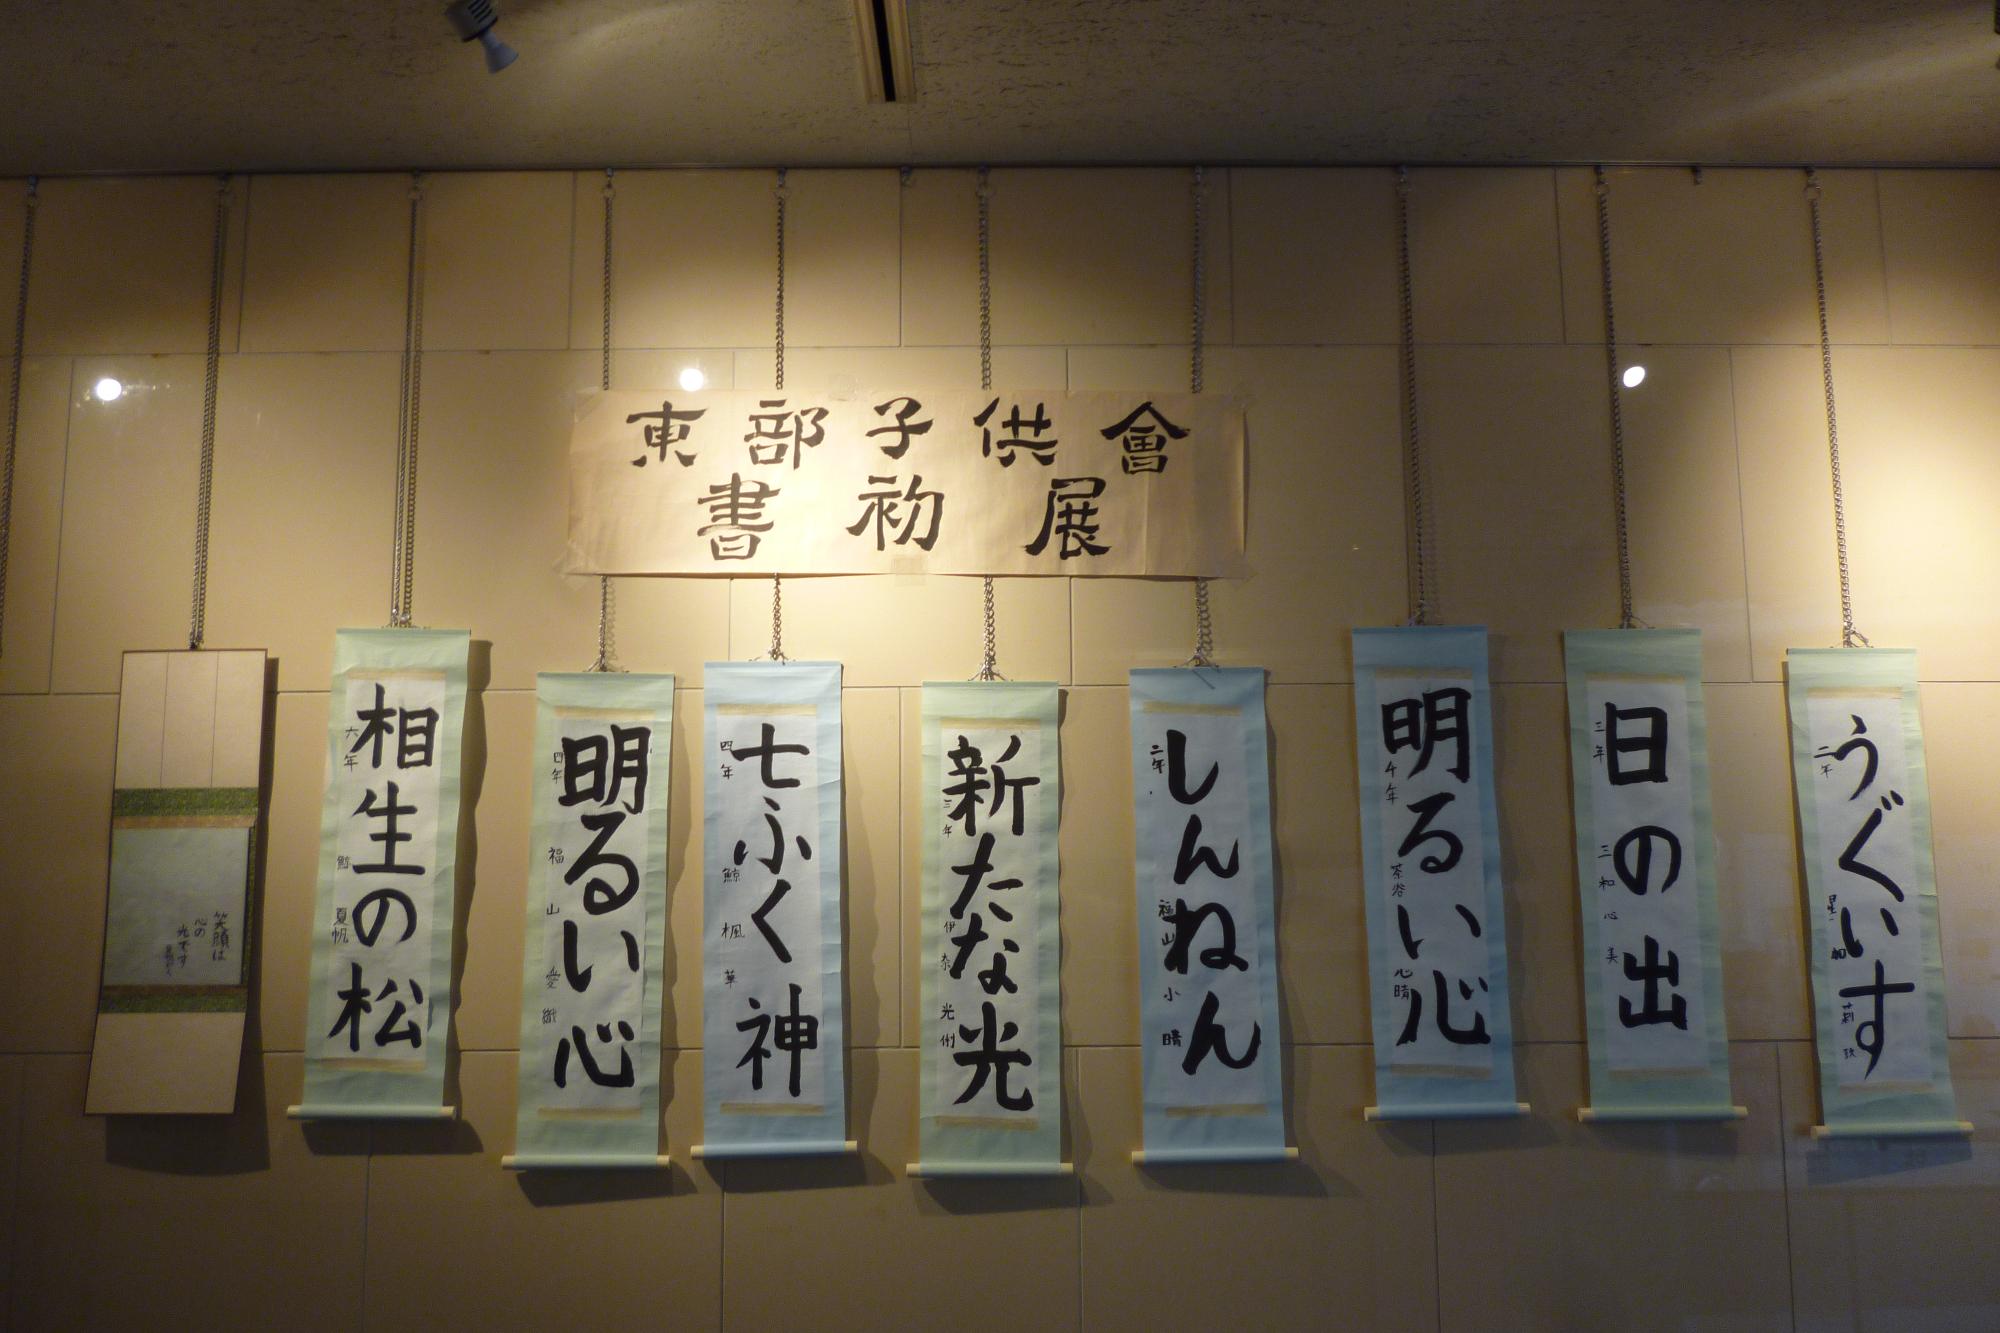 東部子供會
書初展
うぐいす
二年
日の出
三年 三和心美
明るい心
年 茶谷心晴
しんねん
二年 福山小晴
新たな光
三年 伊奈光
七ふく神
四年 鯨楓華
明るい心
四年 福山愛織
相生の松
六年 夏帆
笑顔は
心の
光です